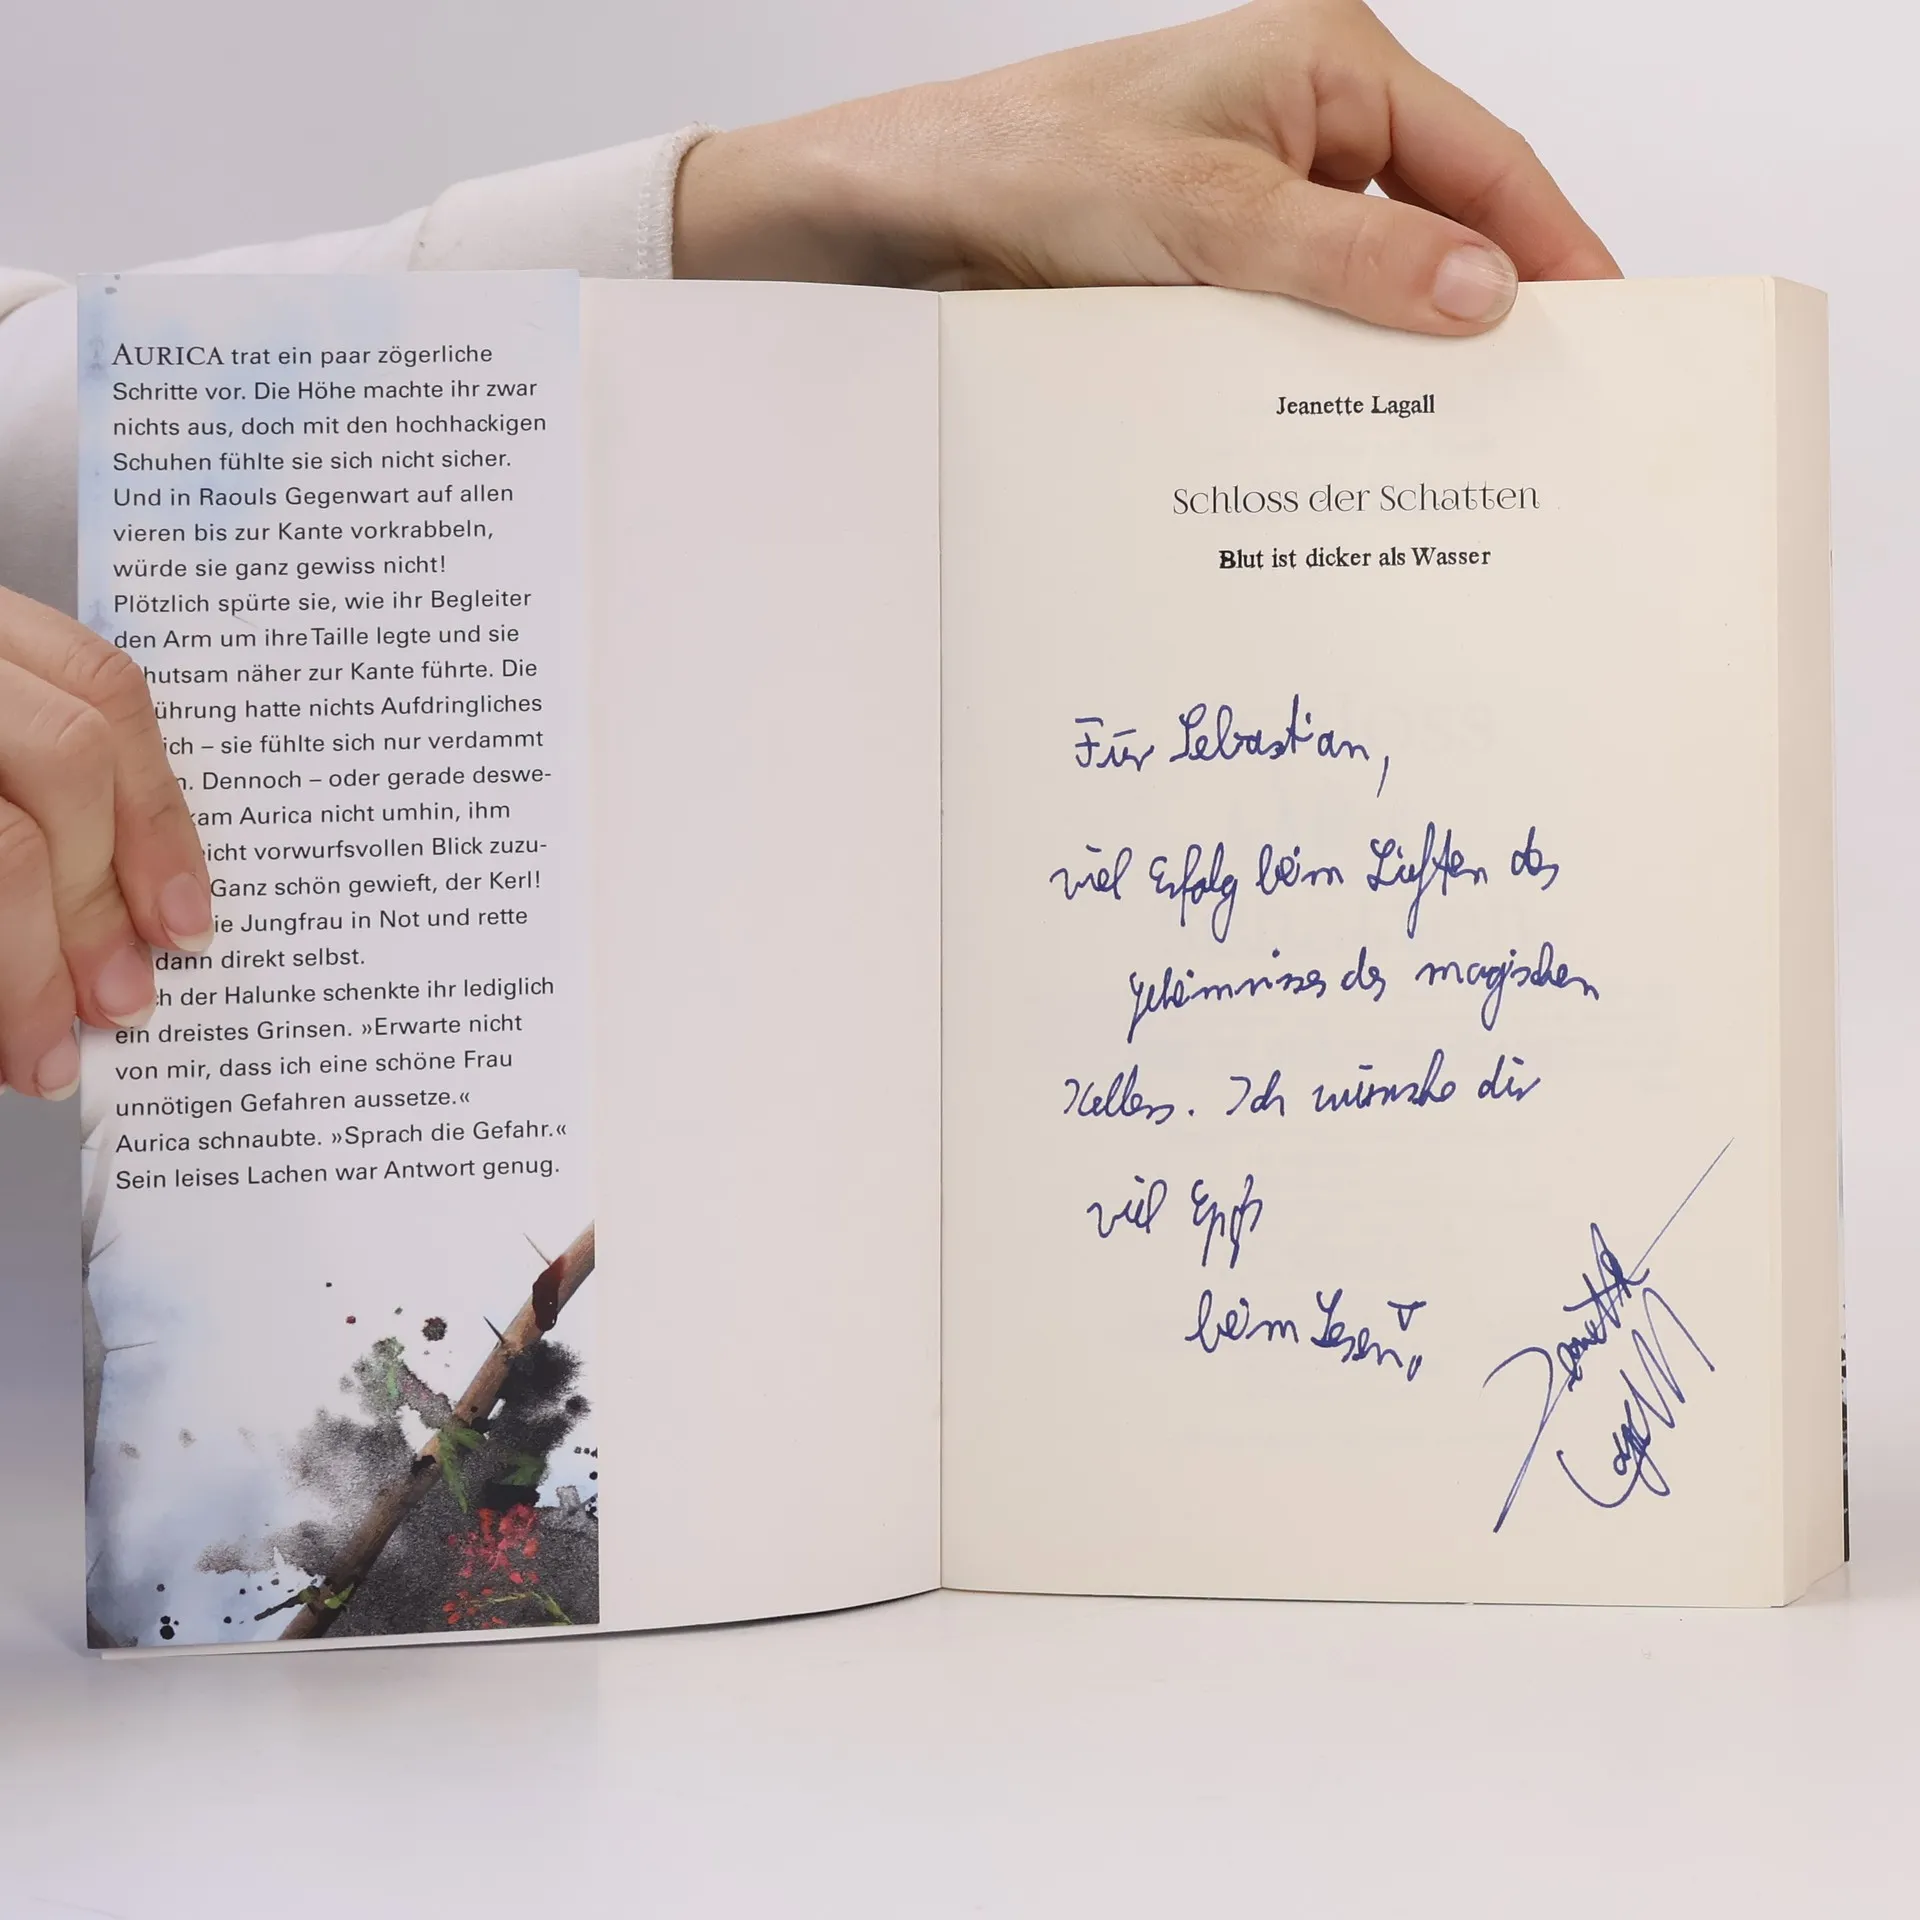 AURICA trat ein paar zögerliche
Schritte vor. Die Höhe machte ihr zwar
nichts aus, doch mit den hochhackigen
Schuhen fühlte sie sich nicht sicher.
Und in Raouls Gegenwart auf allen
vieren bis zur Kante vorkrabbeln,
würde sie ganz gewiss nicht!
Plötzlich spürte sie, wie ihr Begleiter
den Arm um ihre Taille legte und sie
hutsam näher zur Kante führte. Die
ührung hatte nichts Aufdringliches
ich – sie fühlte sich nur verdammt
n. Dennoch – oder gerade deswe-
kam Aurica nicht umhin, ihm
eicht vorwurfsvollen Blick zuzu-
Ganz schön gewieft, der Kerl!
ie Jungfrau in Not und rette
dann direkt selbst.
h der Halunke schenkte ihr lediglich
ein dreistes Grinsen. »Erwarte nicht
von mir, dass ich eine schöne Frau
unnötigen Gefahren aussetze.«
Aurica schnaubte. »Sprach die Gefahr.«
Sein leises Lachen war Antwort genug.
Jeanette Lagall
Schloss der Schatten
Blut ist dicker als Wasser
Für Sebastian,
viel Erfolg beim Lüften des
Geheimnisses des magischen
Kellers. Ich wünsche dir
viel
beim Lesen!
Jeanette
Lagall